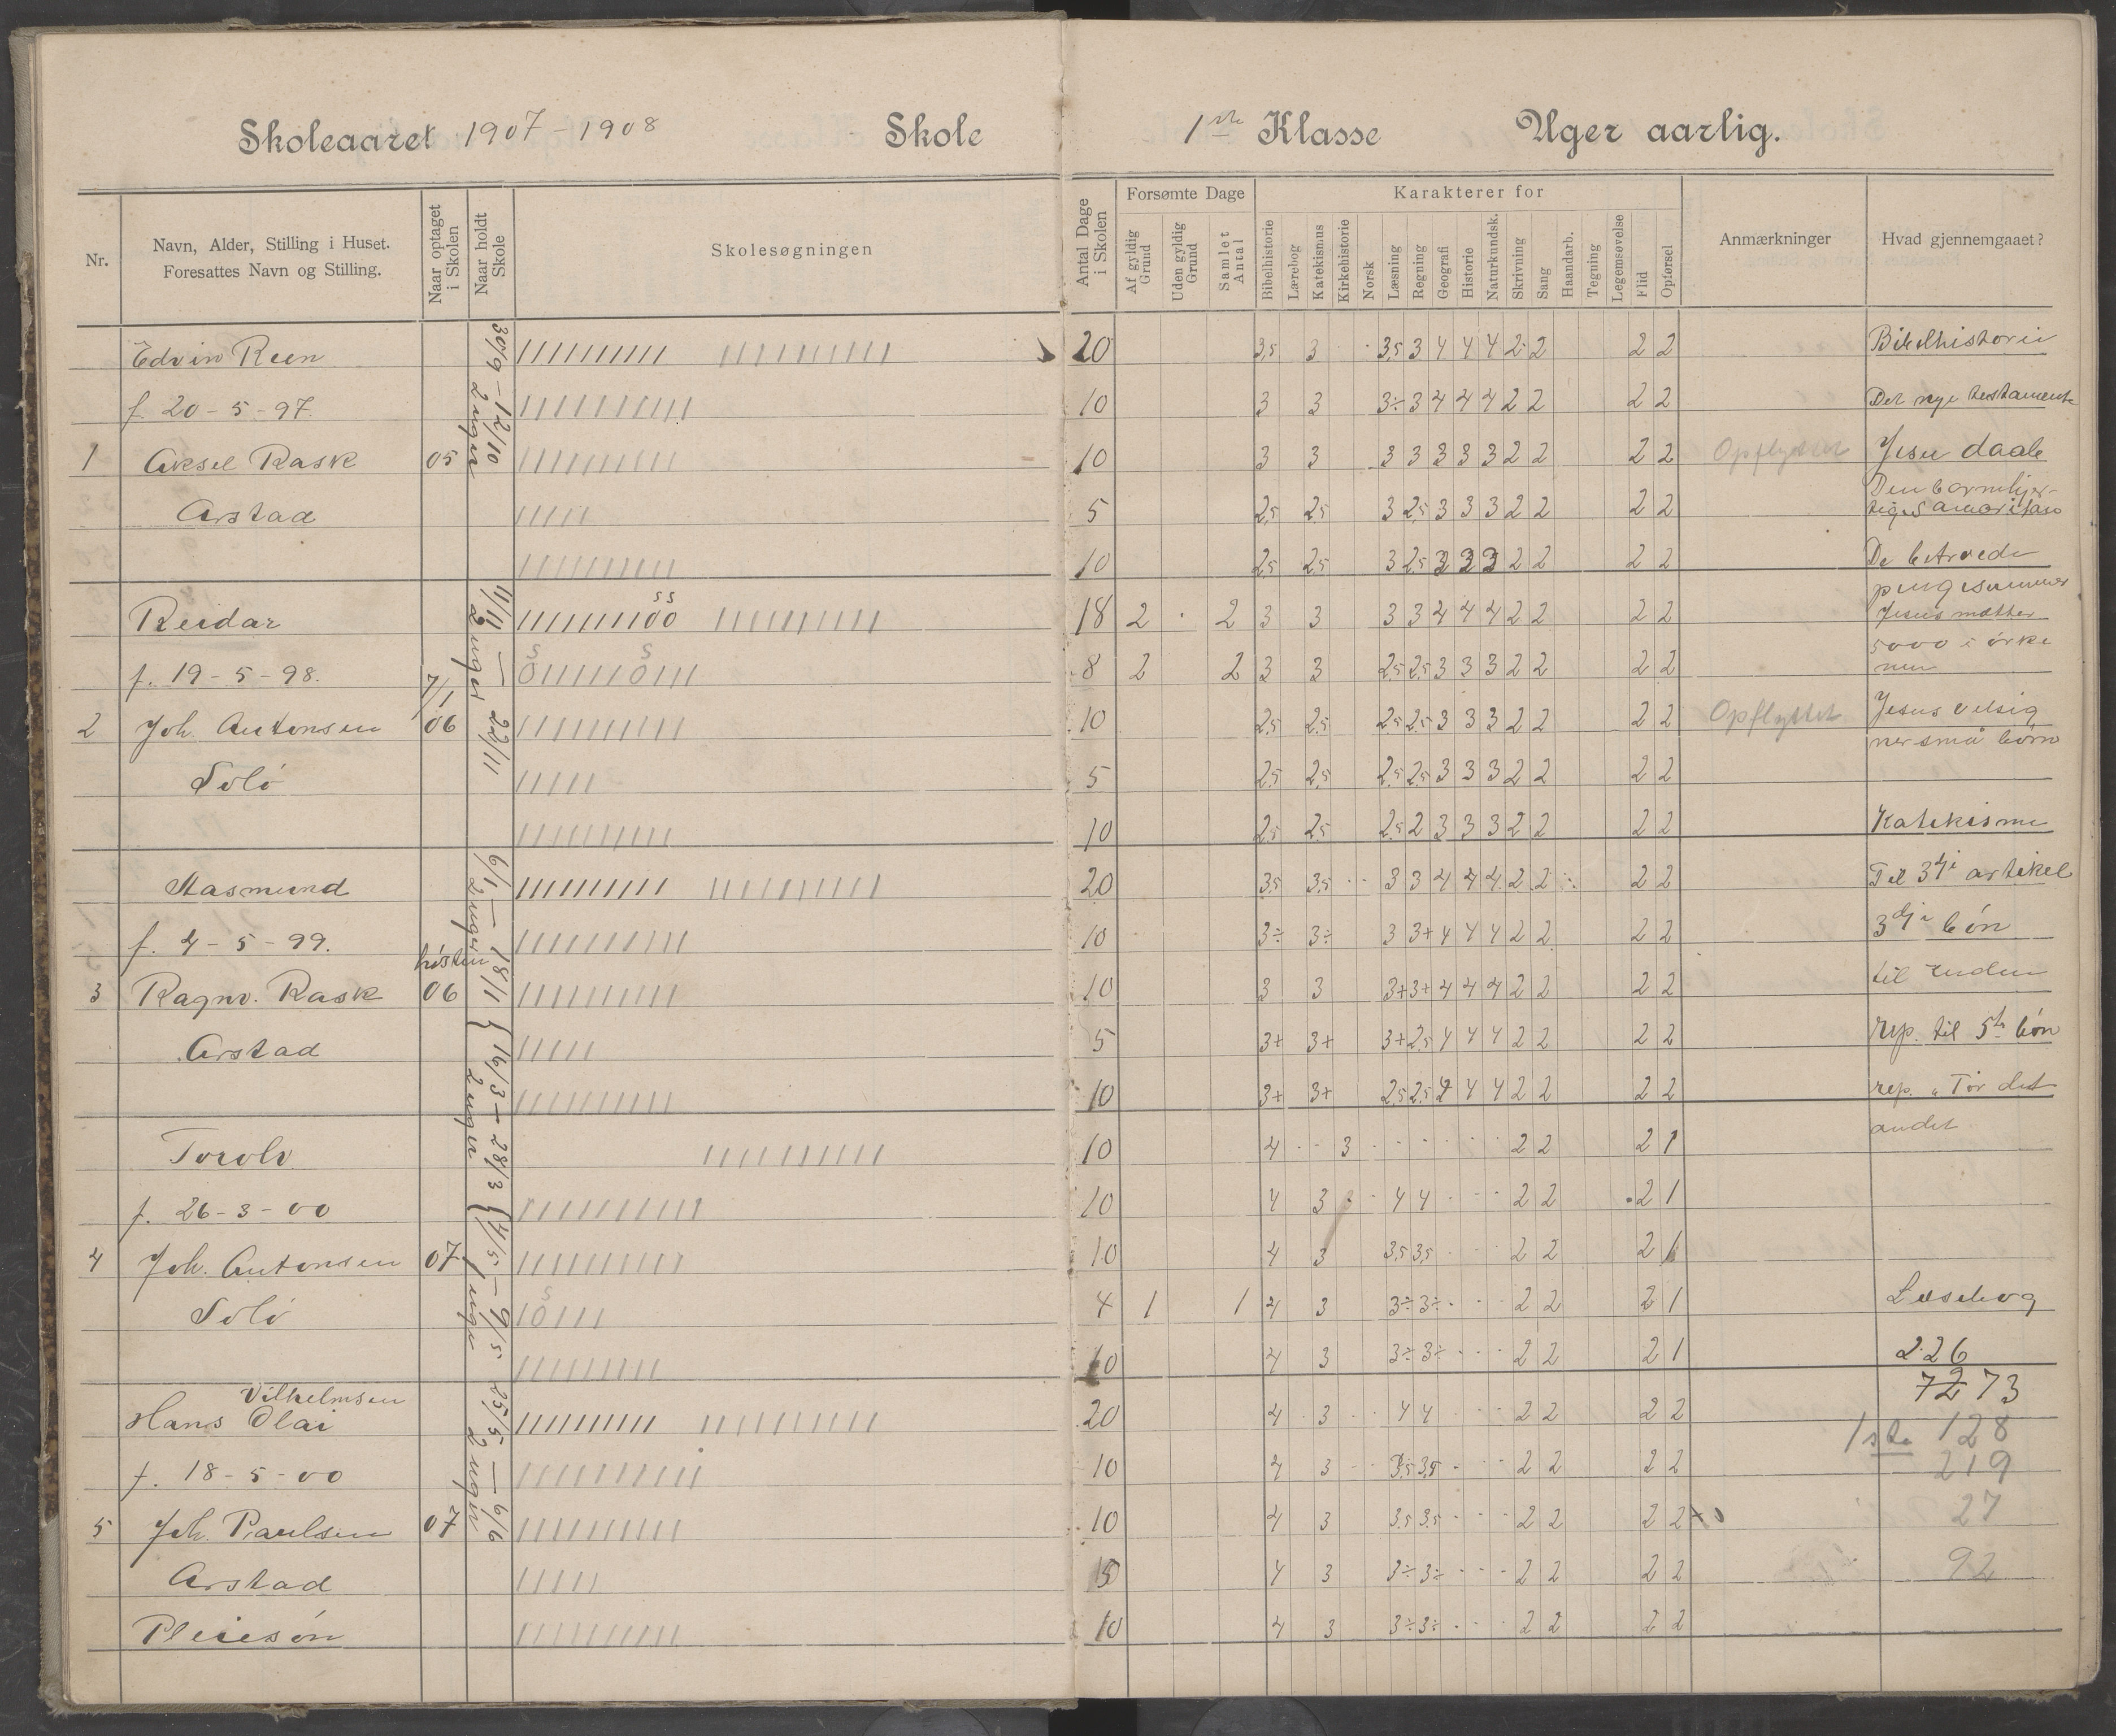 Skoleaaret 1907-1908 Skole 1ste Klasse Uger aarlig.
Nr.
Navn, Alder, Stilling i Huset.
Foresattes Navn og Stilling.
Naar optaget
i Skolen
Naar holdt
Skole
Skolesøgningen
Antal Dage
i Skolen
Forsømte Dage
Af gyldig
Grund
Uden gyldig
Grund
Samlet
Antal
Karakterer for
Bibelhistorie
Lærebog
Katekismus
Kirkehistorie
Norsk
Læsning
Regning
Geografi
Historie
Naturkundsk.
Skrivning
Sang
Haandarb.
Tegning
Legemsøvelse
Flid
Opførsel
Anmærkninger
Hvad gjennemgaaet?
30/9 - 12/10
2 uger
11/11 - 22/11
2 uger
6/1 - 18/1
2 uger
16/3 - 28/3
2 uger
4/5 - 9/5
1 uge
25/5 - 6/6
2 uger
Edvin Reen ////////// ////////// 20 3,5 3 3,5 3 4 4 4 2 2 2 2 Bibelhistorie
f. 20-5-97. ////////// 10 3 3 3÷ 3 4 4 4 2 2 2 2 Det nye testamente
1 Aksel Rask 05 ////////// 10 3 3 3 3 3 3 3 2 2 2 2 Opflyttet Jesu daab
Arstad ///// 5 2,5 2,5 3 2,5 3 3 3 2 2 2 2 Den barmhjer-
tige Samaritan
////////// 10 2,5 2,5 3 2,5 3 3 3 2 2 2 2 De betroede
pengesummer
Reidar ////////00 ////////// 18 2 2 3 3 3 3 4 4 4 2 2 2 2 Jesus mætter
5000 i ørke
f. 19-5-98. 0/////0/// 8 2 2 3 3 2,5 2,5 3 3 3 2 2 2 2 nen
2 Joh. Antonsen 7/1 06 ////////// 10 2,5 2,5 2,5 2,5 3 3 3 2 2 2 2 Opflyttet Jesus velsig
ner små børn
Solö ///// 5 2,5 2,5 2,5 2,5 3 3 3 2 2 2 2
////////// 10 2,5 2,5 2,5 2 3 3 3 2 2 2 2 Katekisme
Aasmund ////////// ////////// 20 3,5 3,5 3 3 4 4 4 2 2 2 2 Til 3dje artikel
f. 4-5-99. ////////// 10 3÷ 3÷ 3 3+ 4 4 4 2 2 2 2 3dje bön
3 Ragnv. Rask hösten 06 ////////// 10 3 3 3+ 3+ 4 4 4 2 2 2 2 til enden
Arstad ///// 5 3+ 3+ 3+ 2,5 4 4 4 2 2 2 2 rep. til 5te bön
////////// 10 3+ 3+ 2,5 2,5 4 4 4 2 2 2 2 rep. "For det
andet
Torolv ////////// 10 4 3 2 2 2 1
f. 26-3-00 ////////// 10 4 3 4 4 2 2 2 1
4 Joh. Antonsen 07 ////////// 10 4 3 3,5 3,5 2 2 2 1
Solö /0/// 4 1 1 4 3 3÷ 3÷ 2 2 2 1 Læsebog
////////// 10 4 3 3÷ 3÷ 2 2 2 1 226
Vilhelmsen
Hans Olai ////////// ////////// 20 4 3 4 4 2 2 2 2 73
1ste 128
f. 18-5-00 ////////// 10 4 3 3,5 3,5 2 2 2 2 219
5 Joh. Paulsen 07 ////////// 10 4 3 3,5 3,5 2 2 2 2 27
Arstad ///// 5 4 3 3÷ 3÷ 2 2 2 2 92
Pleiesön ////////// 10 4 3 3÷ 3÷ 2 2 2 2